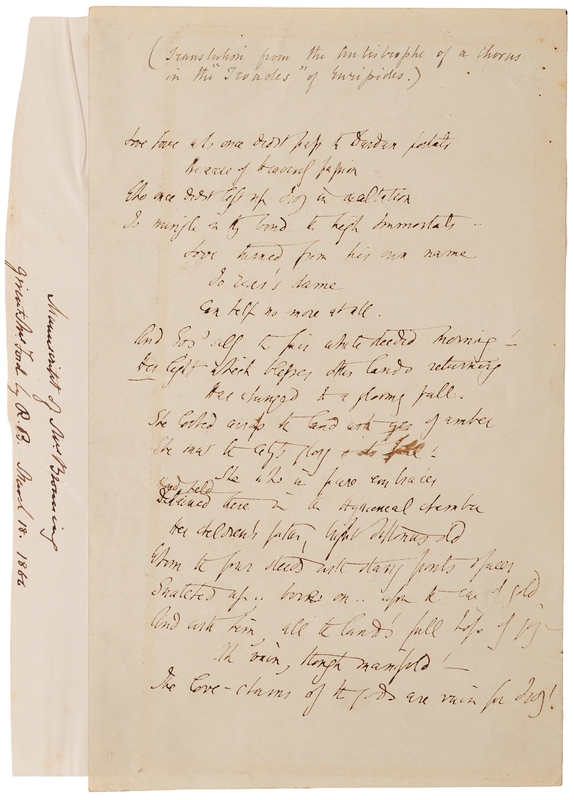 (Translation from the Antistrophe of a Chorus
in the "Troades" of Euripides.)
Love Love who once didst pass the Dardan portals
Because of heavenly passion
Who once didst lift up Troy in exultation
To mingle in thy bond the high Immortals..
Love turned from his own name
To Zeus's shame
Can help no more at all.
And Eos' self the fair white steeded Morning!—
Her light which blesses other lands returning
Has changed to a gloomy pall.
She looked across the land with eyes of amber
She saw the city's glory & its fall!
She who in pure embraces
Had held there in the hymeneal chamber
Her children's father, bright Tithonus old
Whom the four steeds with starry fronts & paces
Snatched up.. bore on.. upon the car of gold
And with him, all the land's full hope of joy—
In vain, though manifold!—
The love-charms of the gods are vain for Troy!
Manuscript of Mrs Browning
given to Mrs Ford by R. B. March 18. 1866